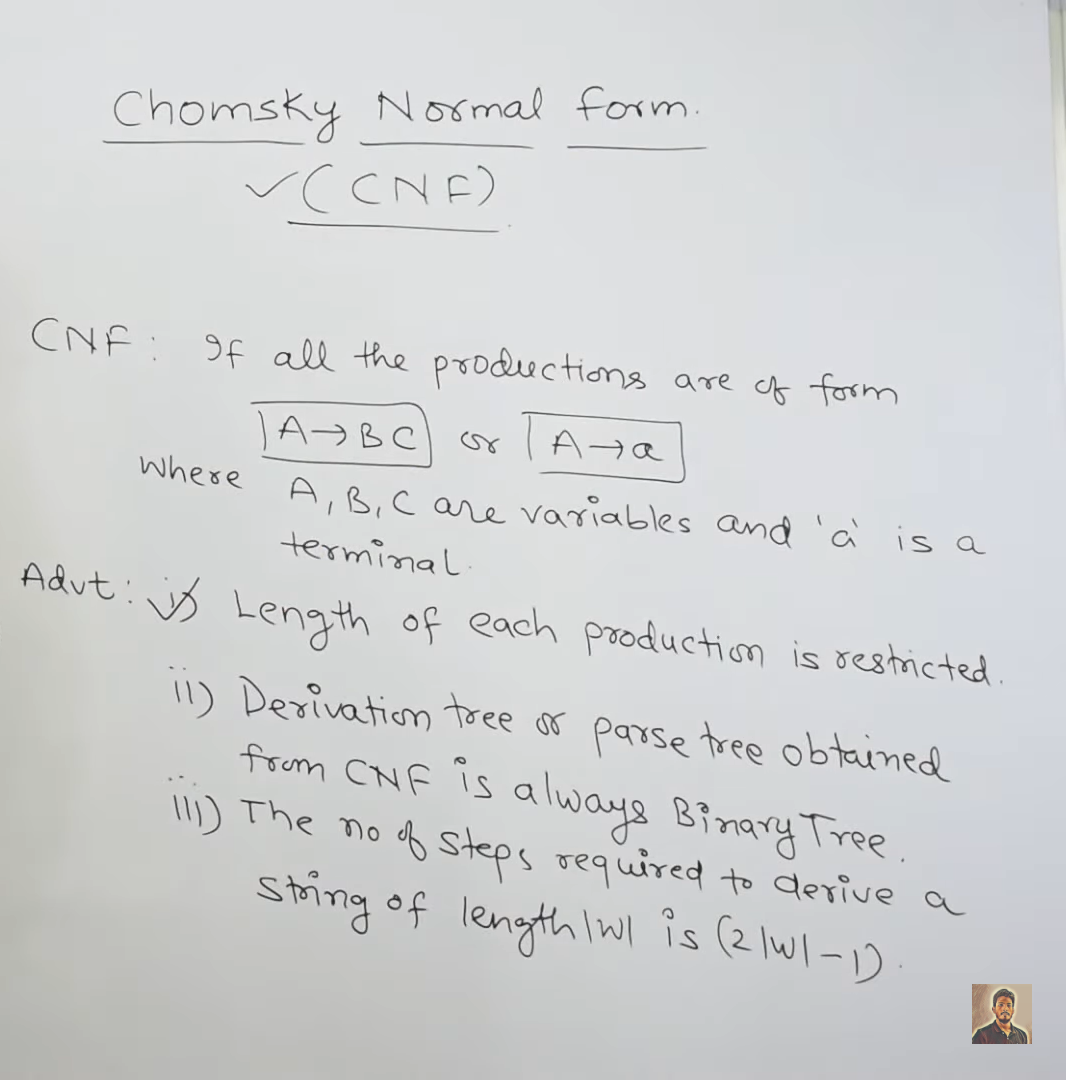 Chomsky Normal form.
✓(CNF)
CNF: If all the productions are of form
A→BC or A→a
Where A, B, C are variables and 'a' is a
terminal.
Advt: i) Length of each production is restricted.
ii) Derivation tree or parse tree obtained
from CNF is always Binary Tree.
iii) The no of steps required to derive a
string of length |w| is (2|w|-1).